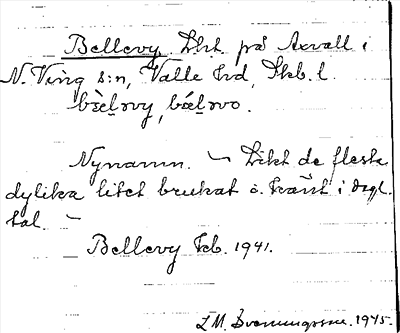 Bellevy. Lht. på Axvall i
N. Ving s:n, Valle hd, Skb. l.
bèḻəvy, bǽḻəvo.
Nynamn. ~ Likt de flesta
dylika litet brukat o. känt i dagl.
tal. ~
Bellevy Tcb. 1941.
1945.